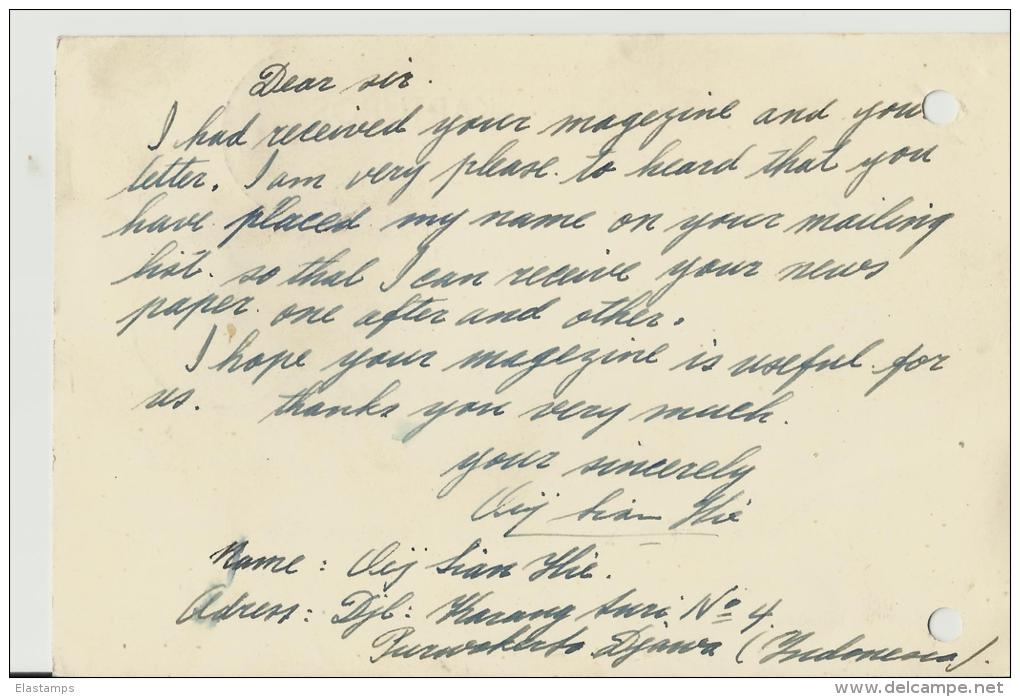 Dear sir.
I had received your magezine and your
letter. I am very please to heard that you
have placed my name on your mailing
list. so that I can receive your news
paper one after and other.
I hope your magezine is useful for
us. thanks you very much.
your sincerely
Oeij Sian Hie
Name: Oeij Sian Hie.
Adress: Djl: Karang suri No 4
Purwokerto Djawa (Indonesia).
Elastamps
www.delcampe.net